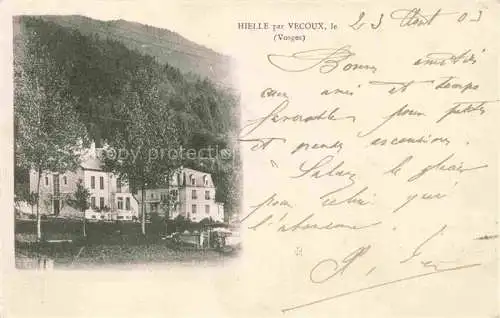 HIELLE par VECOUX, le 23 Août 03
(Vosges)
Bonnes amitiés
aux amis et temps
favorable pour petites
et grandes excursions.
Saluez le
pour celui qui
l'abandonne
copyright powcol